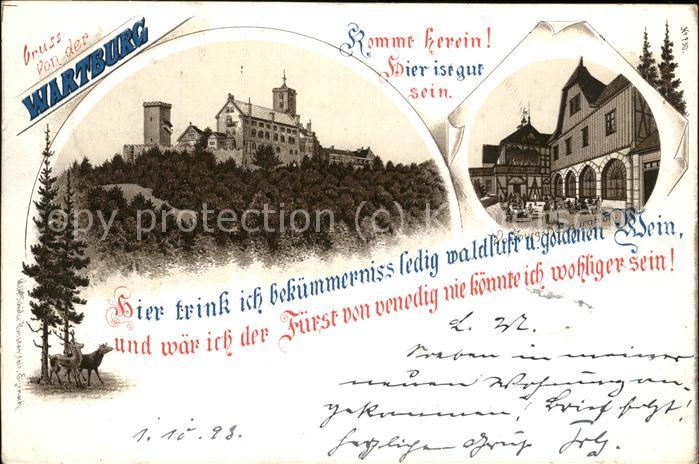 Gruss
von der
WARTBURG
Kommt herein!
Hier ist gut
sein.
No 196.
copy protection copy protection
Hier trink ich bekümmerniss ledig waldluft u. goldenen Wein,
und wär ich der Fürst von venedig nie könnte ich wohliger sein!
L. M.
Soeben in meiner
neuen Wohnung an-
gekommen! Brief folgt!
herzlichen Gruß
1. 10. 98.